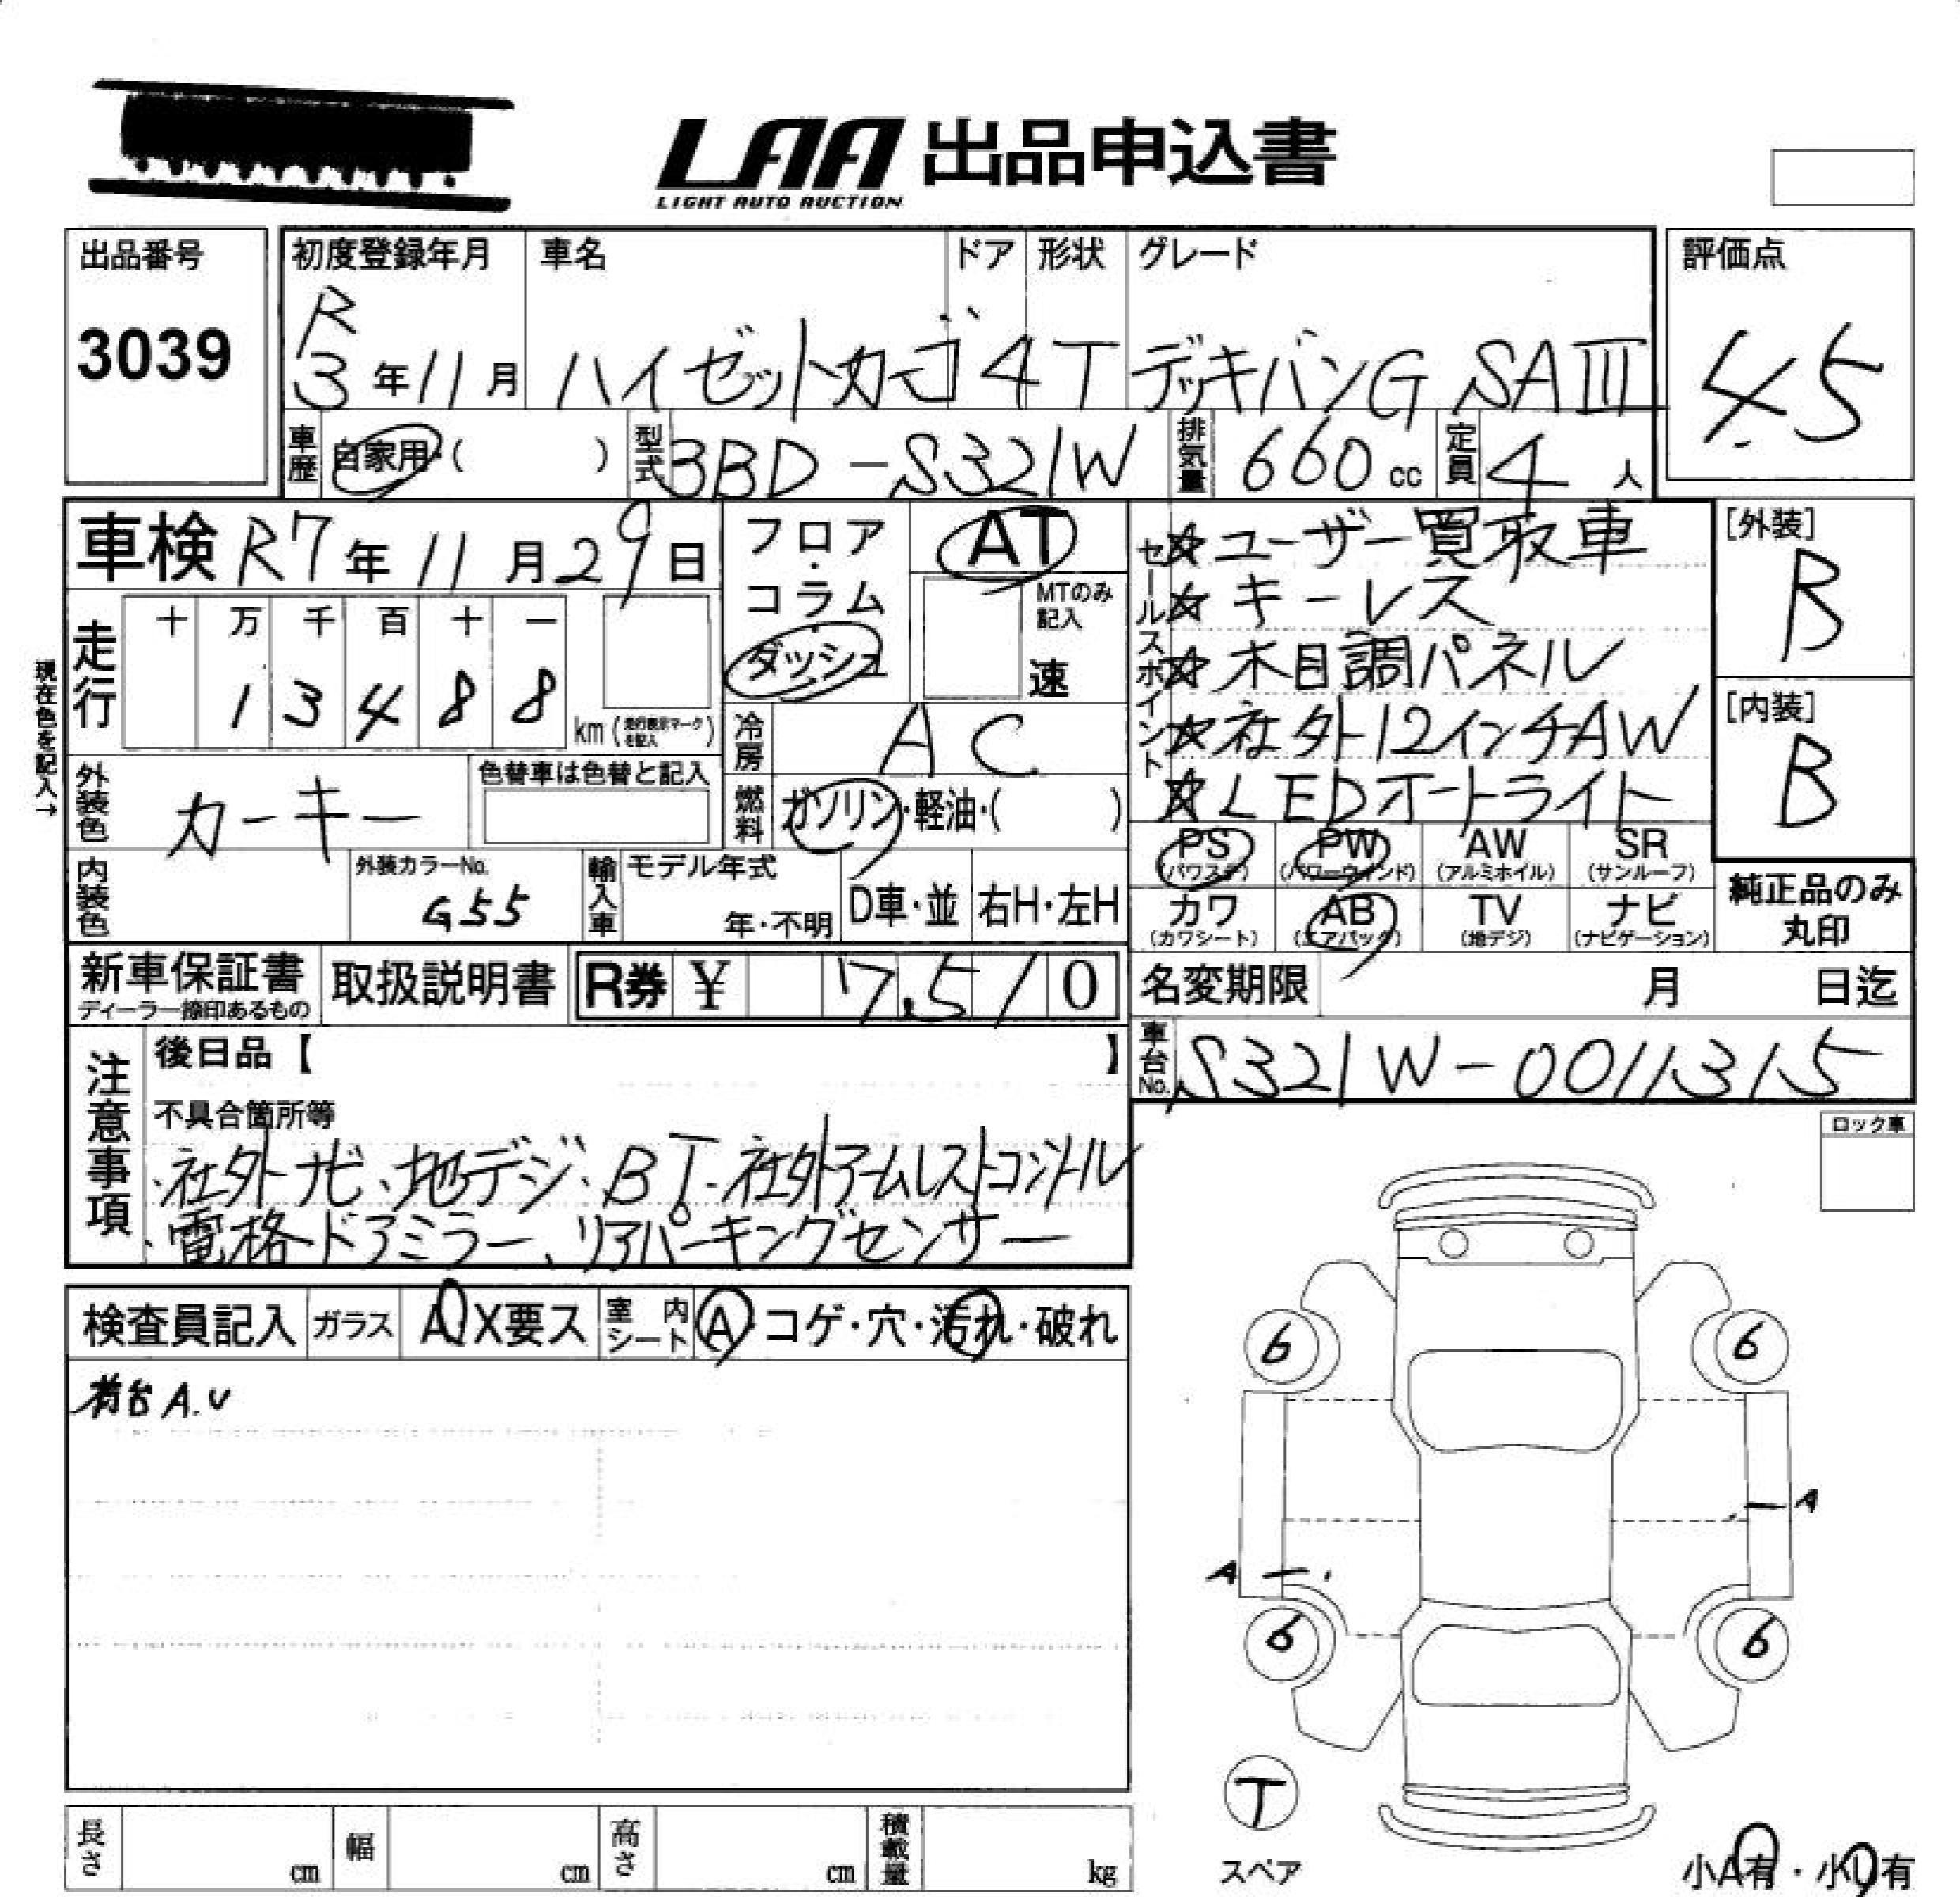 LAA 出品申込書
LIGHT AUTO AUCTION
出品番号
3039
初度登録年月 車名 ドア 形状 グレード
R
3年11月 ハイゼットカーゴ 4 T デッキバンG SAⅢ
評価点
4.5
車歴 自家用・( ) 型式 3BD-S321W 排気量 660cc 定員 4人
車検 R7年11月29日
フロア・コラム
ダッシュ
AT
MTのみ記入
速
セールスポイント
☆ユーザー買取車
☆キーレス
☆木目調パネル
☆社外12インチAW
☆LEDオートライト
[外装]
B
[内装]
B
現在色を記入→
走行 十 万 千 百 十 一
1 3 4 8 8 km(走行表示マークを記入)
冷房 AC
外装色 カーキー 色替車は色替と記入
燃料 ガソリン・軽油・( )
PS (パワステ) PW (パワーウインド) AW (アルミホイル) SR (サンルーフ)
カワ (カワシート) AB (エアバッグ) TV (地デジ) ナビ (ナビゲーション)
純正品のみ丸印
内装色 外装カラーNo. G55 輸入車 モデル年式 年・不明 D車・並 右H・左H
新車保証書 ディーラー捺印あるもの 取扱説明書 R券 ¥ 7,510
名変期限 月 日迄
車台No. S321W-0011315
注意事項
後日品【 】
不具合箇所等
・社外ナビ、地デジ、BT、社外アームレストコンソール
・電格ドアミラー、リアパーキングセンサー
ロック車
検査員記入 ガラス A X要ス 室内シート A・コゲ・穴・汚れ・破れ
荷台A.U
6 6
A
A
6 6
T
スペア
小A有・小U有
長さ cm 幅 cm 高さ cm 積載量 kg